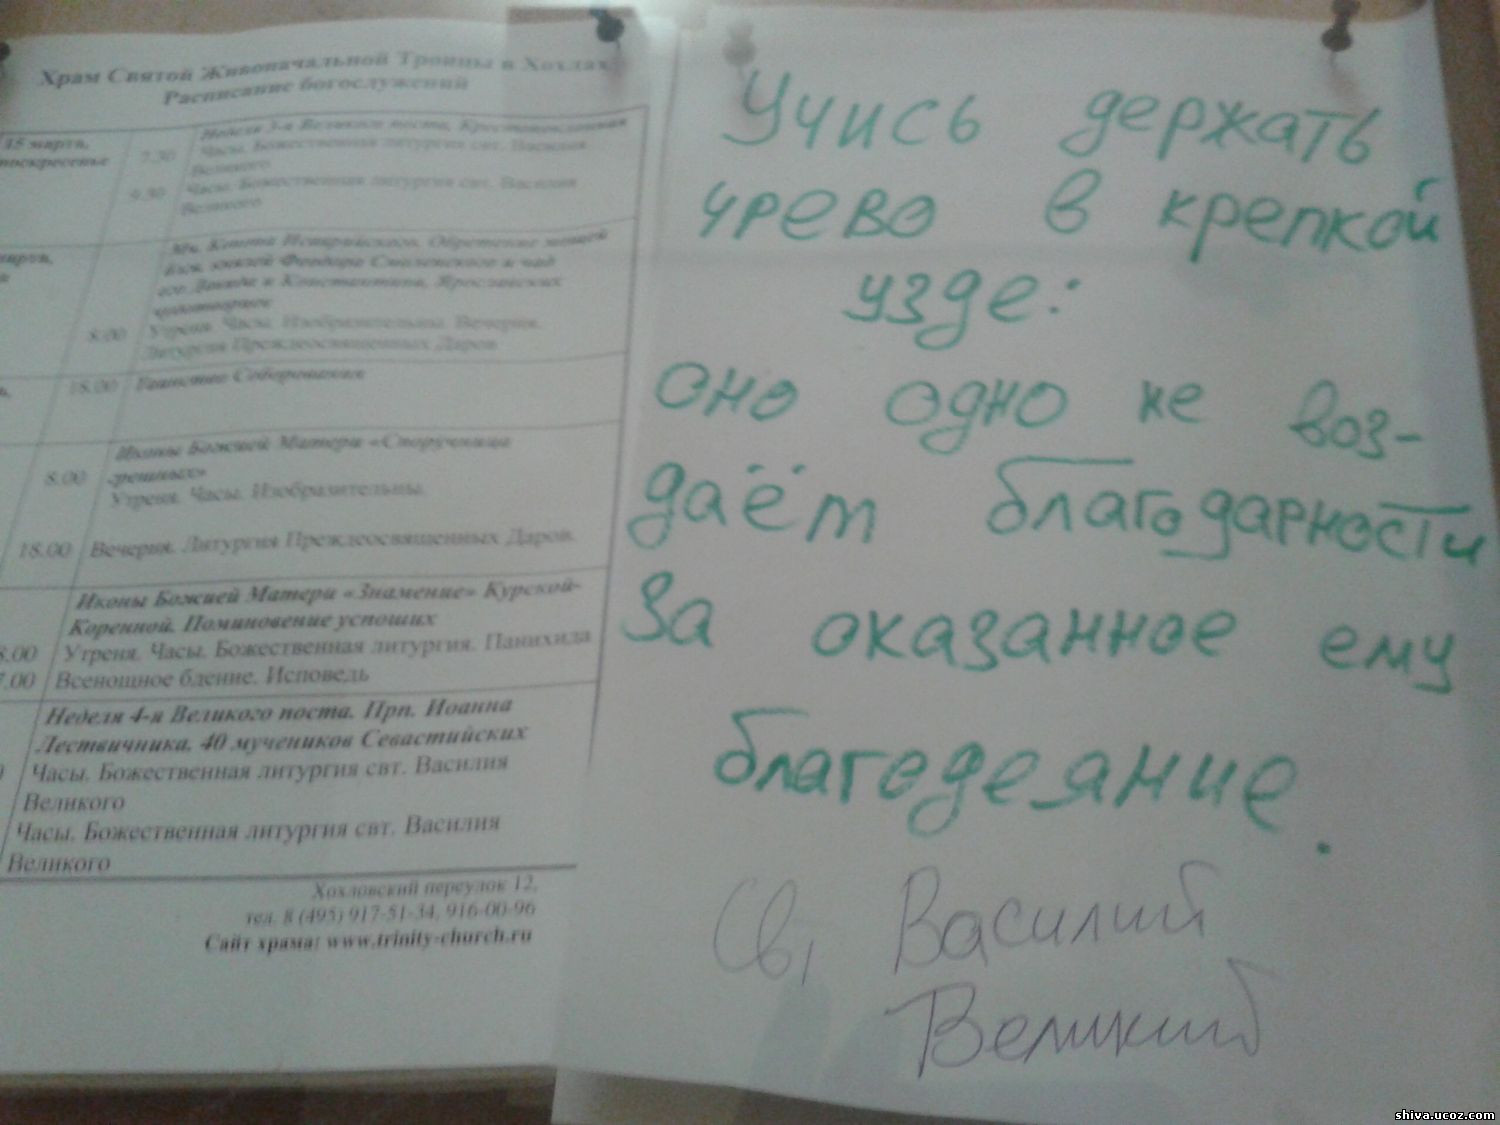 Храм Святой Живоначальной Троицы в Хохлах
Расписание богослужений
15 марта,
воскресенье
7.30
Неделя 3-я Великого поста, Крестопоклонная
Часы. Божественная литургия свт. Василия
Великого
9.30
Часы. Божественная литургия свт. Василия
Великого
Обретение мощей
блгв. князей Феодора Смоленского и чад
его Давида и Константина, Ярославских
чудотворцев
8.00
Утреня. Часы. Изобразительны. Вечерня.
Литургия Преждеосвященных Даров
18.00
Таинство Соборования
Иконы Божией Матери «Споручница
грешных»
8.00
Утреня. Часы. Изобразительны.
18.00
Вечерня. Литургия Преждеосвященных Даров.
Иконы Божией Матери «Знамение» Курской-
Коренной. Поминовение усопших
8.00
Утреня. Часы. Божественная литургия. Панихида
7.00
Всенощное бдение. Исповедь
Неделя 4-я Великого поста. Прп. Иоанна
Лествичника. 40 мучеников Севастийских
Часы. Божественная литургия свт. Василия
Великого
Часы. Божественная литургия свт. Василия
Великого
Хохловский переулок 12,
тел. 8 (495) 917-51-34, 916-00-96
Сайт храма: www.trinity-church.ru
Учись держать
чрево в крепкой
узде:
оно одно не воз-
даёт благодарности
за оказанное ему
благодеяние.
Св, Василий
Великий
shiva.ucoz.com